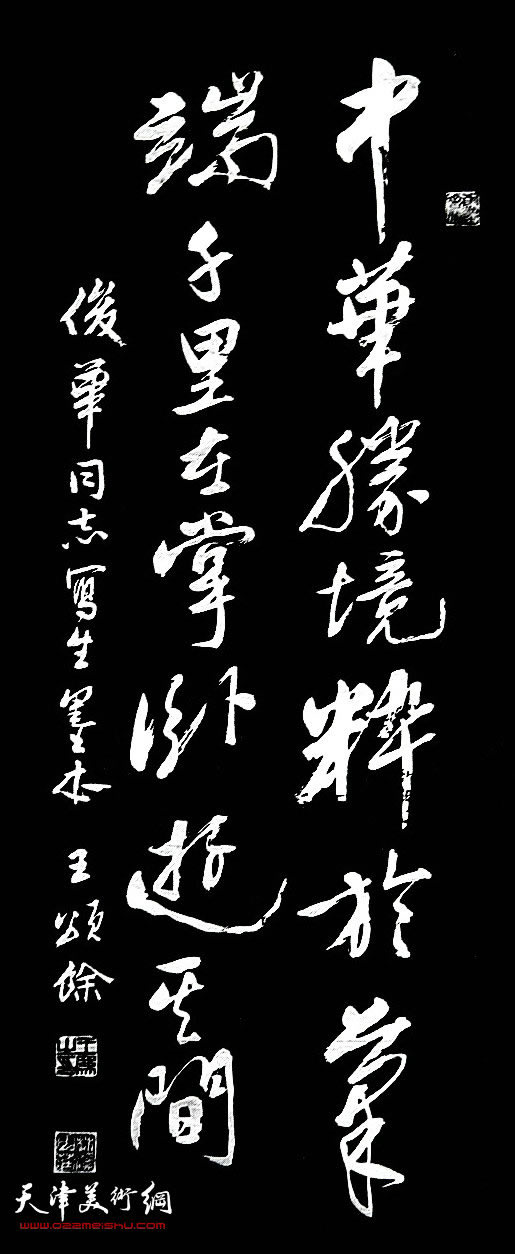 中華勝境粹於筆
端千里在掌卧遊其間
俊華同志寫生墨本 王頌餘
天津美術網
www.022meishu.com